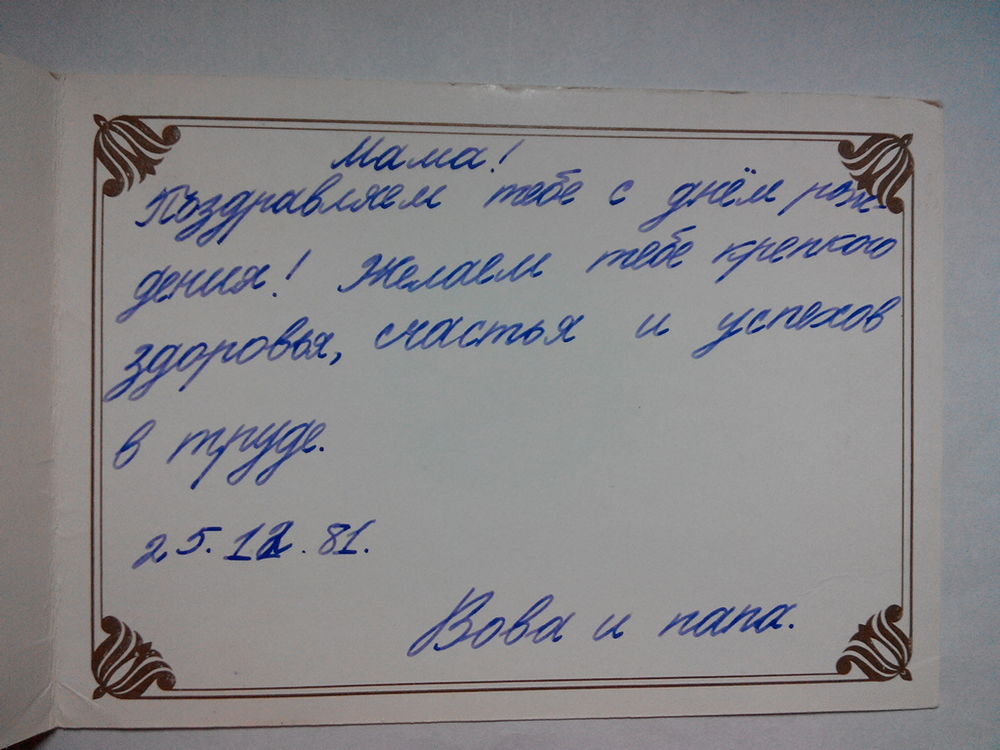 Мама!
Поздравляем тебе с днём рож-
дения! Желаем тебе крепкого
здоровья, счастья и успехов
в труде.
25.12.81.
Вова и папа.